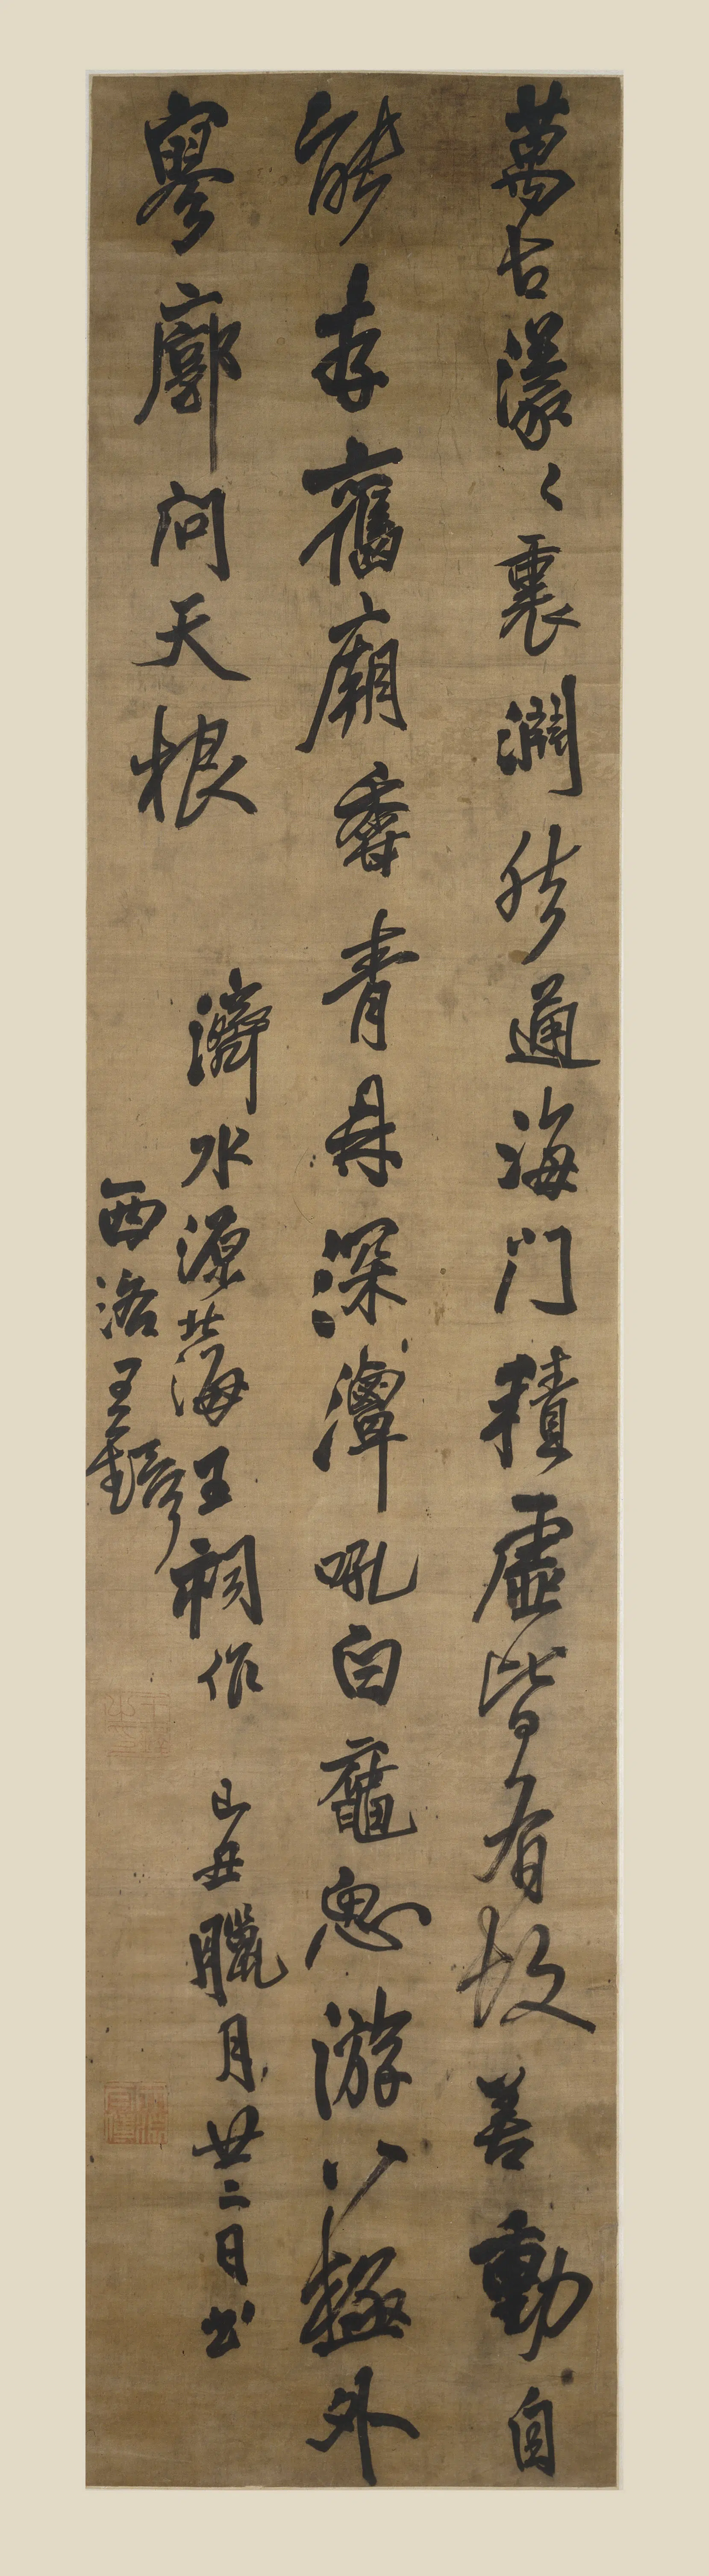 萬古濛々裏濶然通海門積虛皆有故善動自
能存舊廟香青冉深潭吼白黿思游八極外
寥廓問天根
濟水源北海王祠作 己丑臘月廿二日書
西洛王鐸